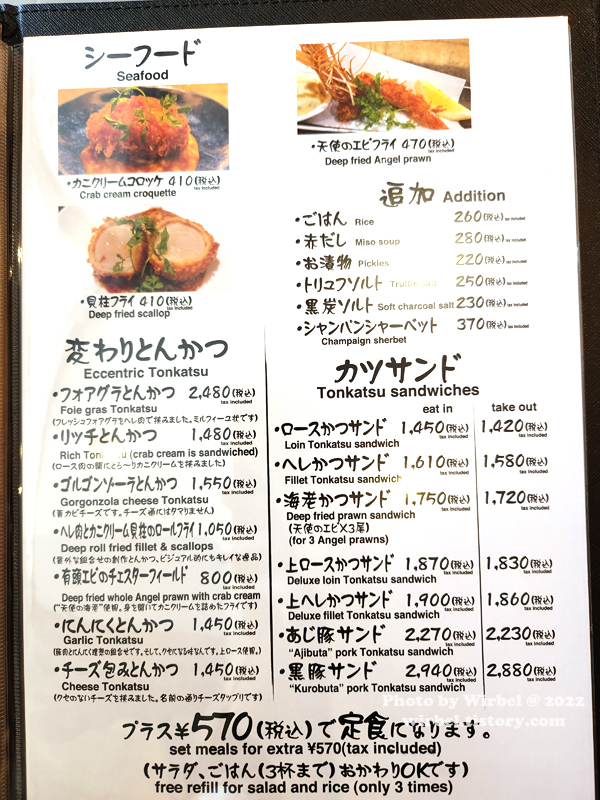 シーフード
Seafood
・カニクリームコロッケ 410(税込)
tax included
Crab cream croquette
・貝柱フライ 410(税込)
tax included
Deep fried scallop
・天使のエビフライ 470(税込)
tax included
Deep fried Angel prawn
追加 Addition
・ごはん Rice 260(税込) tax included
・赤だし Miso soup 280(税込) tax included
・お漬物 Pickies 220(税込) tax included
・トリュフソルト Truffle salt 250(税込) tax included
・黒炭ソルト Soft charcoal salt 230(税込) tax included
・シャンパンシャーベット 370(税込) tax included
Champaign sherbet
変わりとんかつ
Eccentric Tonkatsu
・フォアグラとんかつ 2,480(税込)
tax included
Foie gras Tonkatsu
(フレッシュフォアグラをヘレ肉で挟みました。ミルフィーユ状です)
・リッチとんかつ 1,480(税込)
tax included
Rich Tonkatsu (crab cream is sandwiched)
(ロース肉の間にとろ〜りカニクリームを挟みました)
・ゴルゴンゾーラとんかつ 1,550(税込)
tax included
Gorgonzola cheese Tonkatsu
(青カビチーズです。チーズ通にはタマリません)
・ヘレ肉とカニクリーム貝柱のロールフライ 1,050(税込)
tax included
Deep roll fried fillet & scallops
(意外な組合せの創作とんかつ、ビジュアル的にもキレイな逸品)
・有頭エビのチェスターフィールド 800(税込)
tax included
Deep fried whole Angel prawn with crab cream
("天使の海老"使用。身を開いてカニクリームを詰めたフライです)
・にんにくとんかつ 1,450(税込)
tax included
Garlic Tonkatsu
(豚肉とにんにく理想の組合せです。そして、クセになる味なんです。上ロース使用。)
・チーズ包みとんかつ 1,450(税込)
tax included
Cheese Tonkatsu
(クセのないチーズを挟みました。名前の通りチーズタップリです)
カツサンド
Tonkatsu sandwiches
eat in take out
・ロースかつサンド 1,450(税込) 1,420(税込)
tax included tax included
Loin Tonkatsu sandwich
・ヘレかつサンド 1,610(税込) 1,580(税込)
tax included tax included
Fillet Tonkatsu sandwich
・海老かつサンド 1,750(税込) 1,720(税込)
tax included tax included
Deep fried prawn sandwich
(天使のエビ×3尾)
(for 3 Angel prawns)
・上ロースかつサンド 1,870(税込) 1,830(税込)
tax included tax included
Deluxe loin Tonkatsu sandwich
・上ヘレかつサンド 1,900(税込) 1,860(税込)
tax included tax included
Deluxe fillet Tonkatsu sandwich
・あじ豚サンド 2,270(税込) 2,230(税込)
tax included tax included
"Ajibuta" pork Tonkatsu sandwich
・黒豚サンド 2,940(税込) 2,880(税込)
tax included tax included
"Kurobuta" pork Tonkatsu sandwich
Photo by Wirbel @ 2022
wirbel.tistory.com
プラス¥570(税込)で定食になります。
set meals for extra ¥570(tax included)
(サラダ、ごはん(3杯まで)おかわりOKです)
free refill for salad and rice (only 3 times)